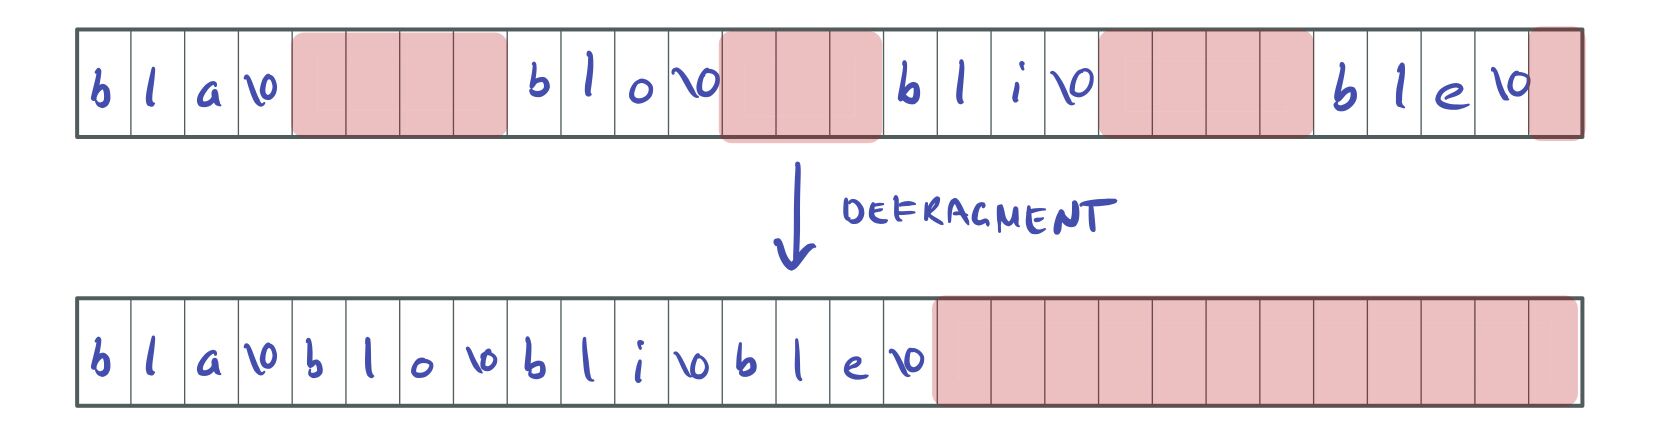 b l a \0 b l o \0 b l i \0 b l e \0
DEFRAGMENT
b l a \0 b l o \0 b l i \0 b l e \0